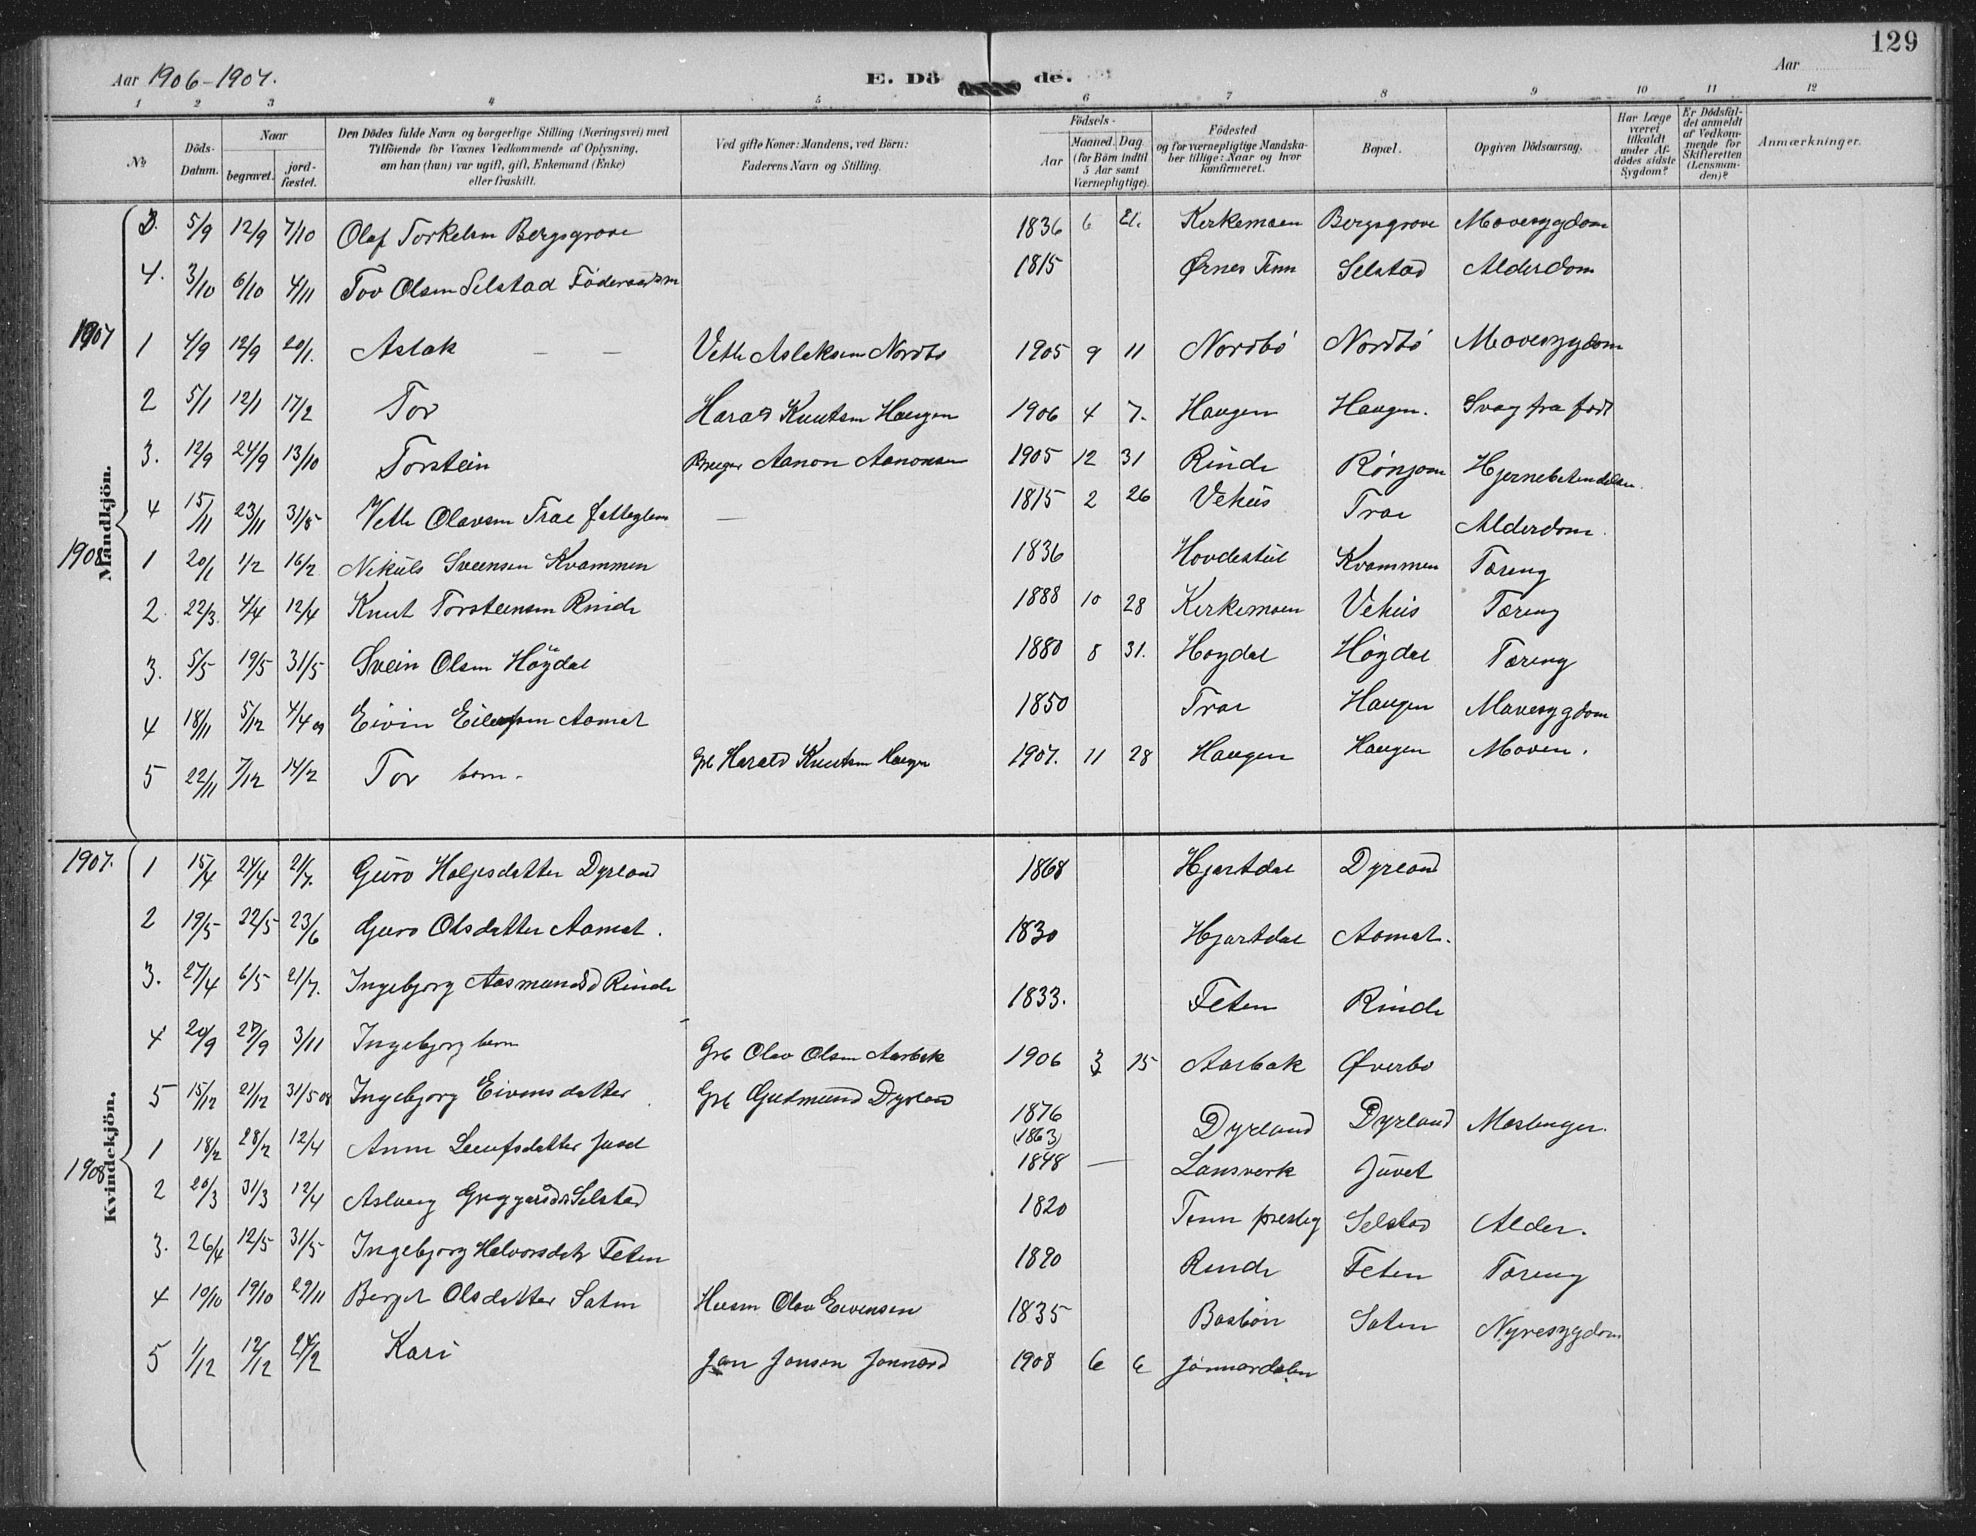 129
Aar 1906-1907. E. Dö de. Aar
1 2 3 4 5 6 7 8 9 10 11 12
№
Döds-Datum.
Naar
begravet. jordfæstet.
Den Dödes fulde Navn og borgerlige Stilling (Næringsvei) med
Tilföiende for Voxnes Vedkommende af Oplysning,
om han (hun) var ugift, gift, Enkemand (Enke)
eller fraskilt.
Ved gifte Koner: Mandens, ved Börn:
Faderens Navn og Stilling.
Födsels-
Aar Maaned. Dag
(for Börn indtil
5 Aar samt
Værnepligtige).
Födested
og for værnepligtige Mandska-
ber tillige: Naar og hvor
konfirmeret.
Bopæl.
Opgiven Dödsaarsag.
Har Læge
været
tilkaldt
under Af-
dödes sidste
Sygdom?
Er Dödsfal-
det anmeldt
af Vedkom-
mende for
Skifteretten
(Lensman-
den)?
Anmærkninger.
Mandkjön.
3. 5/9 12/9 7/10 Olaf Torkelsen Bergsgrove 1836 6 21. Kirkemoen Bergsgrove Mavesygdom
4. 3/10 6/10 4/11 Tov Olsen Selstad Föderaadsm 1815 Ørnes Tinn Selstad Alderdom
1907
1 4/9 12/9 20/1. Aslak — — Vetle Aslaksen Nordbö 1905 9 11 Nordbö Nordbö Mavesygdom
2 5/1 12/1 17/2 Tov Harald Knutsen Haugen 1906 4 7. Haugen Haugen. Svag fra födt
3. 12/9 24/9 13/10 Torstein Bruger Aanon Aanonsen 1905 12 31 Rinde Rönjom Hjernebetendelse.
4 15/11 23/11 31/5 Vetle Olavsen Trae fattiglem — 1815 2 26 Vehus Trae Alderdom.
1908
1 20/1 1/2 16/2 Nikuls Sveensen Kvammen 1836 Hovdestul Kvammen Tæring
2. 22/3. 4/4 12/4 Knut Torsteinsen Rinde 1888 10 28 Kirkemoen Vehus Tæring
3. 5/5 19/5 31/5 Svein Olsen Höydal 1880 8 31. Hoydal Höydal Tæring
4 18/11 5/12 4/4 09 Eivin Eilefsen Aamot 1850 Trae Haugen Mavesygdom
5 22/11 7/12 14/2 Tov barn. Grb Harald Knutsen Haugen 1907. 11 28 Haugen Haugen Maven.
Kvindekjön.
1907.
1 15/4 24/4 21/7. Guro Helgesdatter Dyrland 1868 Hjartdal Dyrland
2 19/5 22/5 23/6 Guro Olsdatter Aamot. 1830 Hjartdal Aamot.
3. 27/4 6/5 21/7. Ingebjorg Aasmundsd Rinde 1833. Feten Rinde
4 20/9 27/9 3/11 Ingebjorg barn Grb Olav Olsen Aarbak 1906 3 15 Aarbak Øverbo
5 15/12 21/12 31/5 08 Ingebjorg Eivensdatter Grb Gudmund Dyrland 1876 (1863) Dyrland Dyrland Meslinger.
1908
1 18/2 28/2 12/4 Anne Leufsdatter Juvd 1848 — Lansverk Juvet
2 20/3 31/3 12/4 Aslaug Greggarsdtr Selstad 1820 Tinn prestg Selstad Alder.
3. 26/4 12/5 31/5 Ingebjorg Halvorsdatr Feten 1890 Rinde Feten Tæring
4 10/10 19/10 29/11 Berget Olsdatter Saten Husm Olav Eivensen 1835 Basbön Saten Nyresygdom
5 1/12 12/12 24/2 Kari Jon Jonsen Jonnard 1908 6 6 Jonnardalen